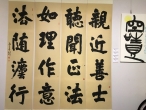 親近善士
聽聞正法
如理作意
法隨法行